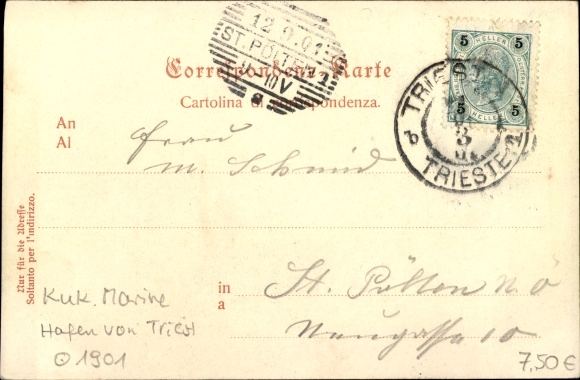 12 9.01
ST. PÖLTEN 1
MV
Correspondenz-Karte
Cartolina di corrispondenza.
5 HELLER 5
5 HELLER 5
TRIEST
TRIESTE 2
b
An
Al
Frau
M. Schmid
Nur für die Adresse
Soltanto per l'indirizzo.
in
a
St. Pölten N. Ö
Neugasse 10
KuK. Marine
Hafen von Triest
1901
7,50 €